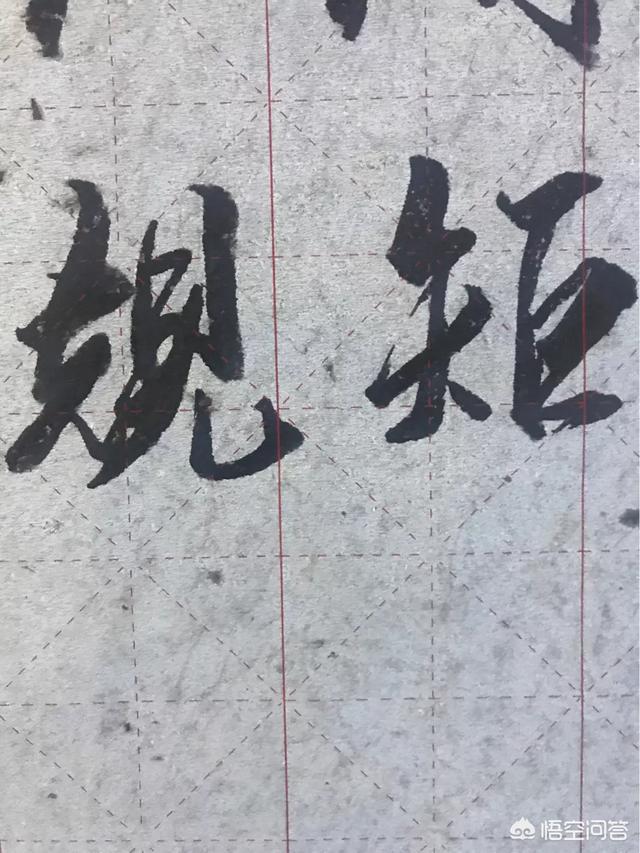 规矩
悟空问答